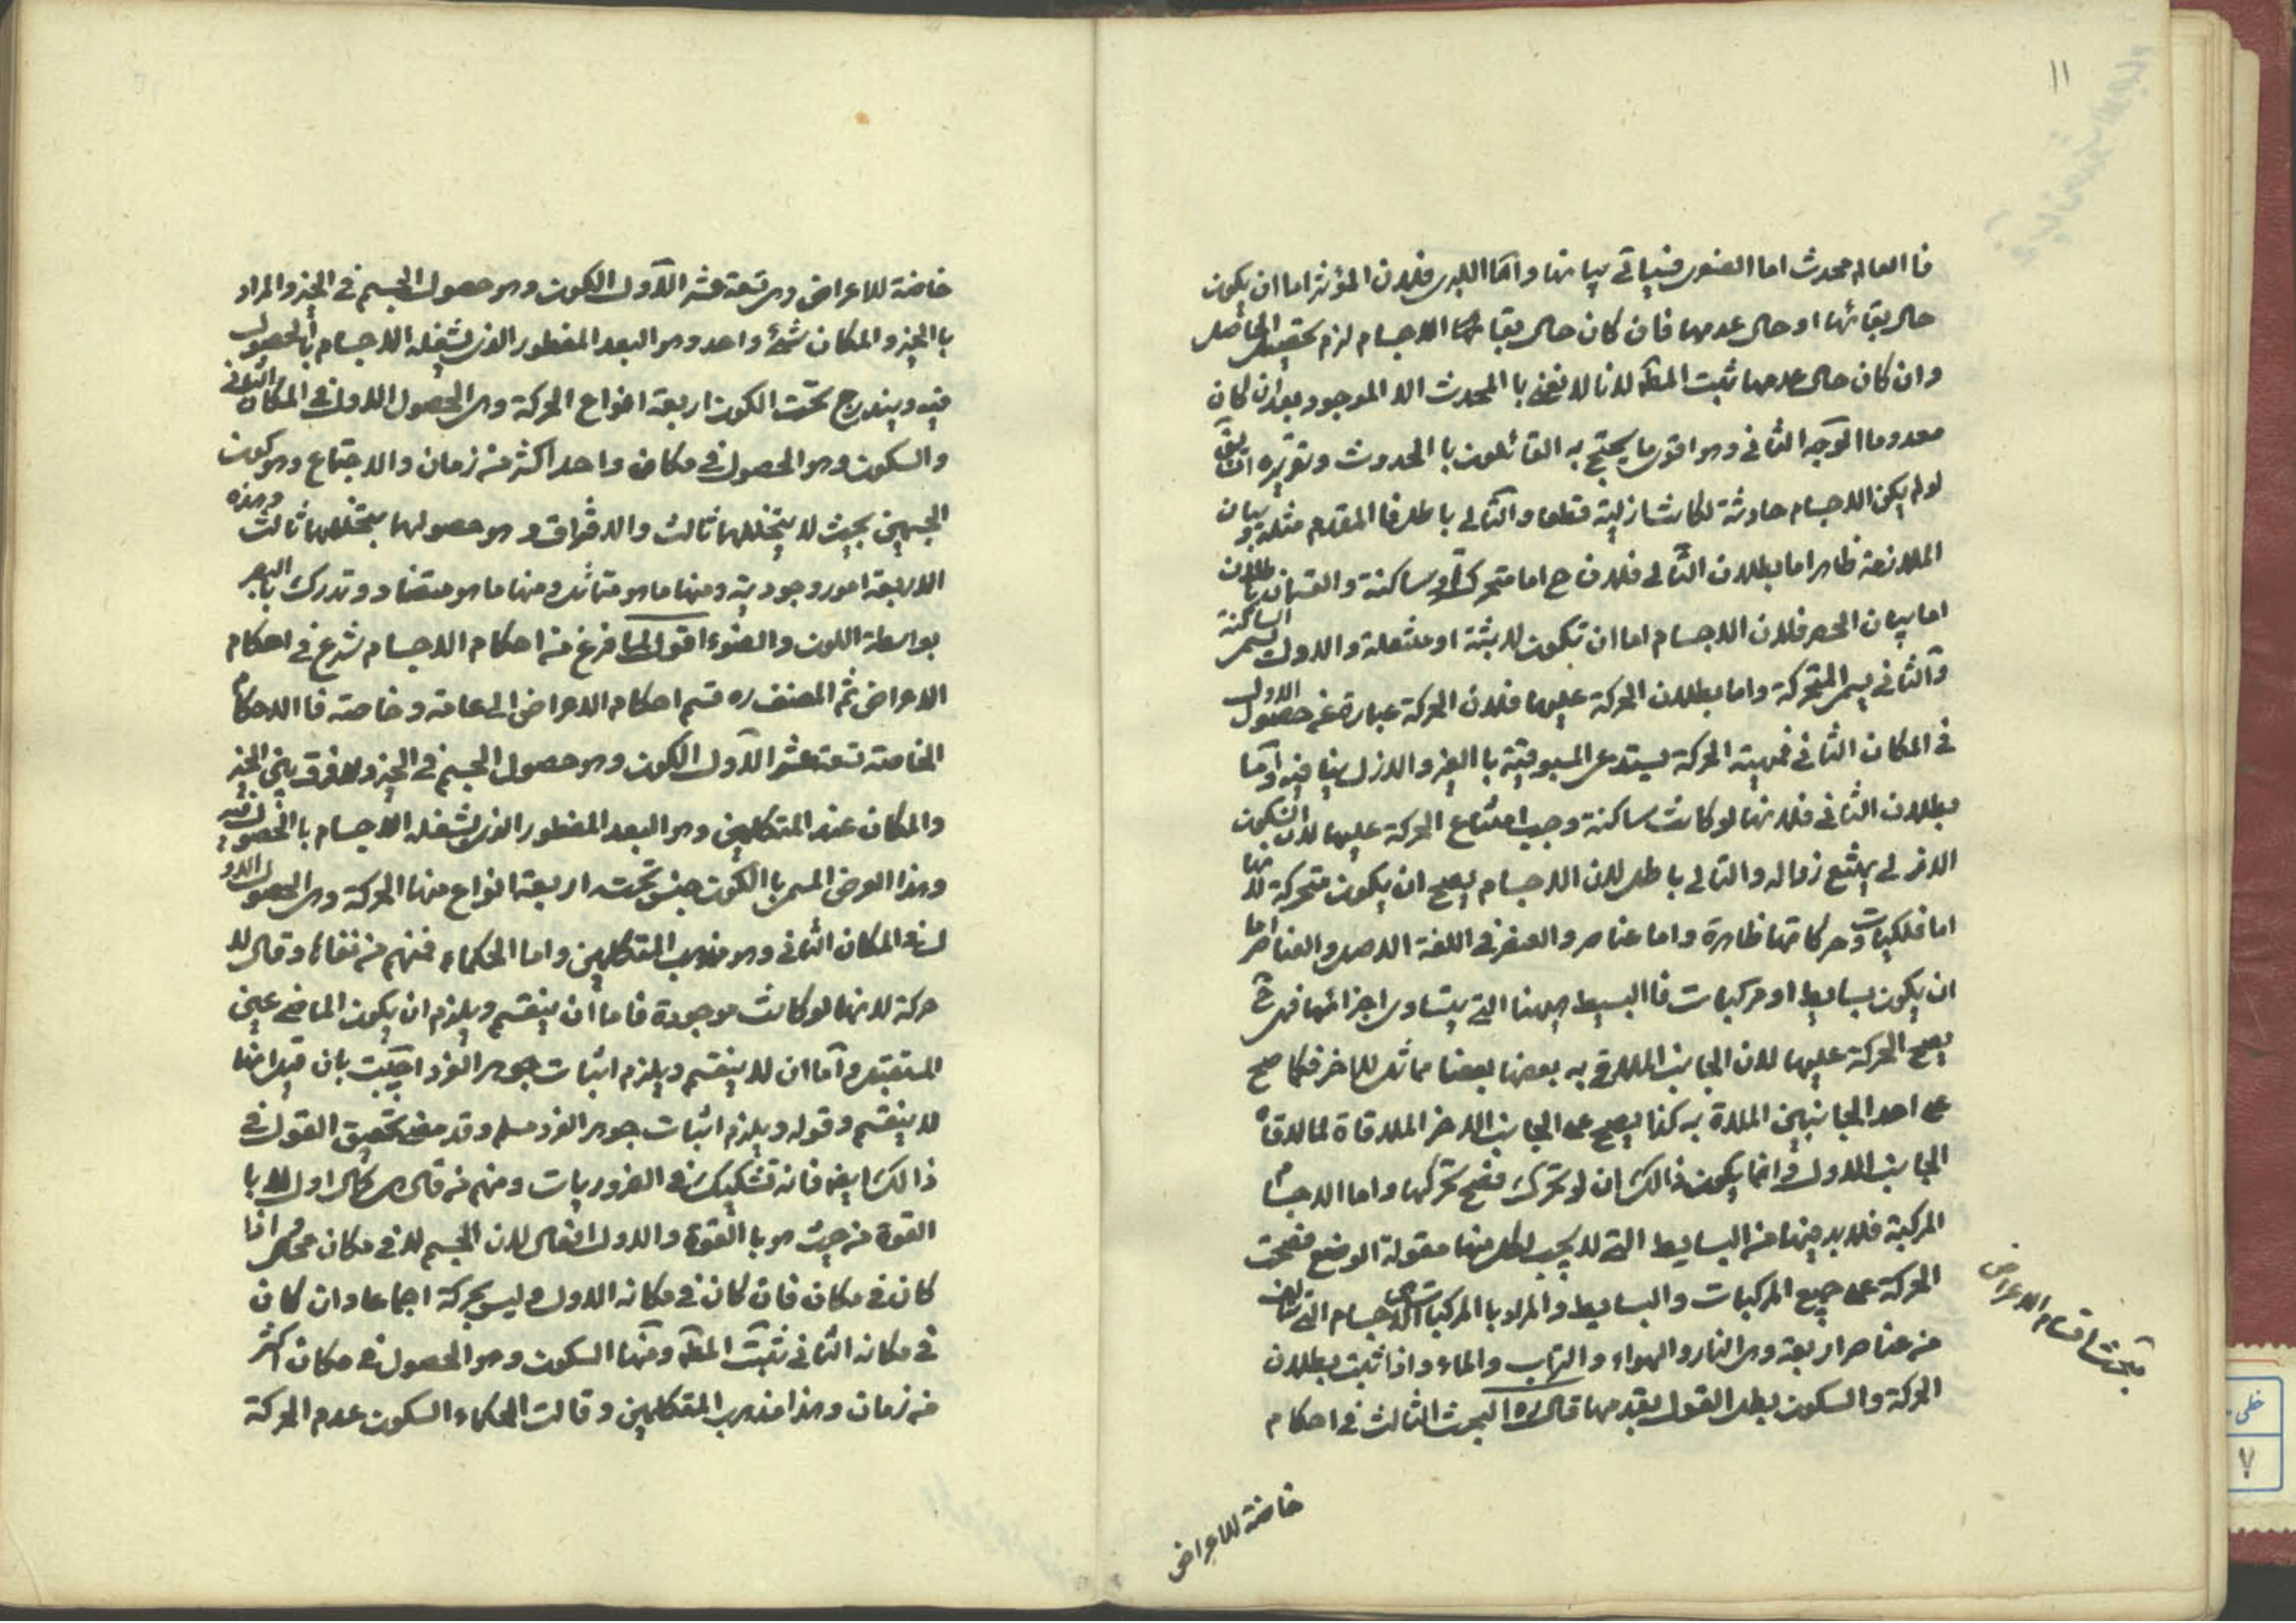 ١١
فا العالم محدث اما الصغرى فسياتى بيانها واما الكبرى فلان المؤثر اما ان يكون
حال بقائها او حال عدمها فان كان حال بقائها الاجسام لزم تحصيل الحاصل
وان كان حال عدمها ثبت المط لانا لا نعنى با المحدث الا الموجود بعد ان كان
معدوما الوجه الثانى وهو اقوى ما يحتج به القائلون با الحدوث وتقريره ان يقال
لو لم يكن الاجسام حادثة لكانت ازلية قطعا والتالى باطل فا المقدم مثله وبيان
الملازمة ظاهر اما بطلان التالى فلان ح اما متحركة او ساكنة والقسمان باطلان
اما بيان الحصر فلان الاجسام اما ان تكون لابثة او منتقلة والاول يسمى الساكنة
والثانى يسمى المتحركة واما بطلان الحركة عليها فلان الحركة عبارة عن حصول الاول
فى المكان الثانى فمهية الحركة يستدعى المسبوقية با الغير والازل ينافيه واما
بطلان الثانى فلانها لو كانت ساكنة وجب امتناع الحركة عليها لان السكون
الازلى يمتنع زواله والتالى باطل لان الاجسام يصح ان يكون متحركة لانها
اما فلكيات وحركاتها ظاهرة واما عناصر والعنصر فى اللغة الاصل والعناصر اما
ان يكون بسايط او مركبات فا البسيط ههنا التى يتساوى اجزائها فهى ح
يصح الحركة عليها لان الجانب الملاقى به بعضها بعضا مماثل للاخر فكما صح
على احد الجانبين الملاقاة به كذا يصح على الجانب الاخر الملاقاة لما لاقاه
الجانب الاول وانما يكون ذالك ان لو تحرك فصح تحركها واما الاجسام
المركبة فلابد فيها من البسايط التى لا يجب لكل منها مقولة الوضع فصحت
الحركة على جميع المركبات والبسايط والمراد با المركبات هى الاجسام التى تتالف
من عناصر اربعة وهى النار والهواء والتراب والماء واذا ثبت بطلان
الحركة والسكون بطل القول بقدمها قال ره البحث الثالث فى احكام
مبحث اقسام الاعراض
خاصة للاعراض
خاصة للاعراض وهى تسعة عشر الاول الكون وهو حصول الجسم فى الحيز والمراد
با الحيز والمكان شئ واحد وهو البعد المفطور الذى يشغله الاجسام با الحصول
فيه ويندرج تحت الكون اربعة انواع الحركة وهى الحصول الاول فى المكان الثانى
والسكون وهو الحصول فى مكان واحد اكثر من زمان والاجتماع وهو كون
الجسمين بحيث لا يتخللهما ثالث والافتراق وهو حصولهما يتخللهما ثالث وهذه
الاربعة امور وجودية ومنها ما هو متماثل ومنها ما هو متضاد وتدرك با البصر
بواسطة اللون والضوء اقول لما فرغ من احكام الاجسام شرع فى احكام
الاعراض ثم المصنف ره قسم احكام الاعراض الى عامة وخاصة فا الاحكام
الخاصة تسعة عشر الاول الكون وهو حصول الجسم فى الحيز ولا فرق بين الحيز
والمكان عند المتكلمين وهو البعد المفطور الذى يشغله الاجسام با الحصول فيه
وهذا العرض المسمى با الكون جنس تحته اربعة انواع منها الحركة وهى الحصول الاول
فى المكان الثانى وهو مذهب المتكلمين واما الحكماء فمنهم من نفاها وقال لا
حركة لانها لو كانت موجودة فاما ان ينقسم ويلزم ان يكون الماضى عين
المستقبل واما ان لا ينقسم ويلزم اثبات جوهر الفرد اجيبت بان قيل انها
لا ينقسم وقوله ويلزم اثبات جوهر الفرد مسلم وقد مضى تحقيق القول فى
ذالك ايضا فانه تشكيك فى الضروريات ومنهم من قال هى كمال اول لما با
القوة من حيث هو با القوة والاول افعال لان الجسم لا فى مكان محال اذا
كان فى مكان فان كان فى مكانه الاول وليس بحركة اجماعا وان كان
فى مكانه الثانى ثبت المط ومنها السكون وهو الحصول فى مكان اكثر
من زمان وهذا مذهب المتكلمين وقالت الحكماء السكون عدم الحركة
خطى
٧